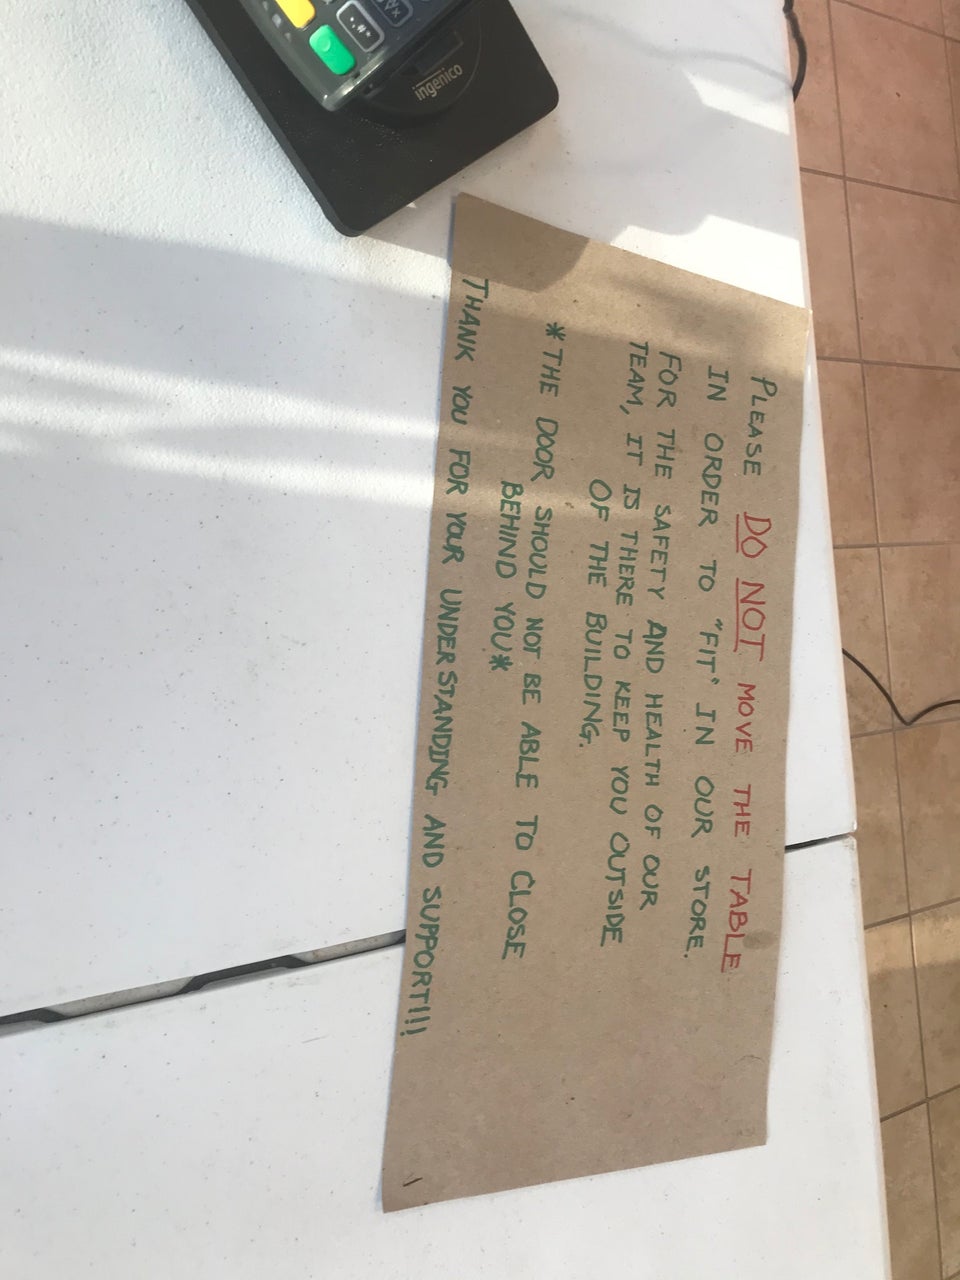 PLEASE DO NOT MOVE THE TABLE
IN ORDER TO "FIT" IN OUR STORE.
FOR THE SAFETY AND HEALTH OF OUR
TEAM, IT IS THERE TO KEEP YOU OUTSIDE
OF THE BUILDING.
*THE DOOR SHOULD NOT BE ABLE TO CLOSE
BEHIND YOU*
THANK YOU FOR YOUR UNDERSTANDING AND SUPPORT!!!
ingenico
.,#*